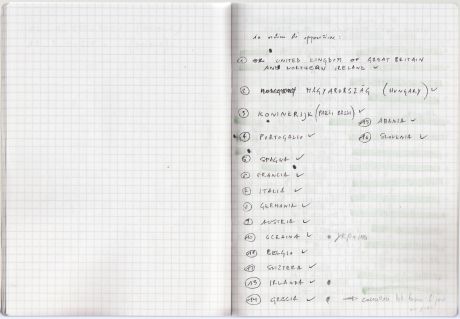 in ordine di apparizione:
① UNITED KINGDOM OF GREAT BRITAIN
AND NORTHERN IRELAND ✓
② MAGYARORSZÁG (HUNGARY) ✓
③ KONINKRIJK (PAESI BASSI) ✓
⑮ ALBANIA ✓
④ PORTOGALLO ✓
⑯ SLOVENIA ✓
⑤ SPAGNA ✓
⑥ FRANCIA ✓
⑦ ITALIA ✓
⑧ GERMANIA ✓
⑨ AUSTRIA ✓
⑩ UCRAINA ✓
⑪ BELGIO ✓
⑫ SVIZZERA ✓
⑬ IRLANDA ✓
⑭ GRECIA ✓ →